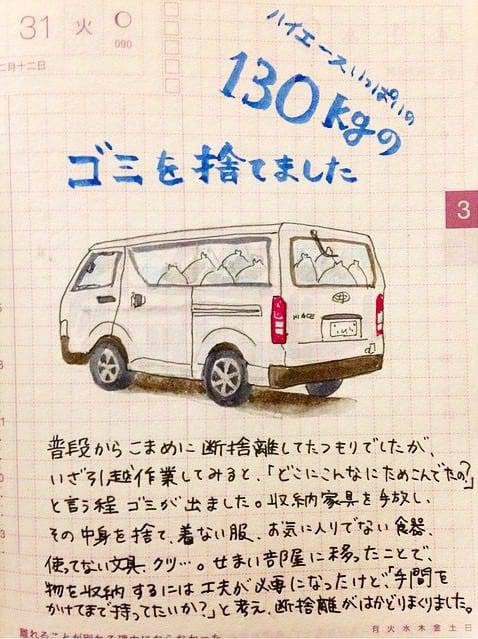 31 火
000
二月十二日
ハイエースいっぱいの
130kgの
ゴミを捨てました
3
HIACE
普段からこまめに断捨離してたつもりでしたが、
いざ引越作業してみると、「どこにこんなにためこんでたの?」
と言う程ゴミが出ました。収納家具を手放し、
その中身を捨て、着ない服、お気に入りでない食器、
使ってない文具、クツ…。せまい部屋に移ったことで、
物を収納するには工夫が必要になったけど、「手間を
かけてまで持ってたいか?」と考え、断捨離がはかどりまくりました。
月火水木金土日